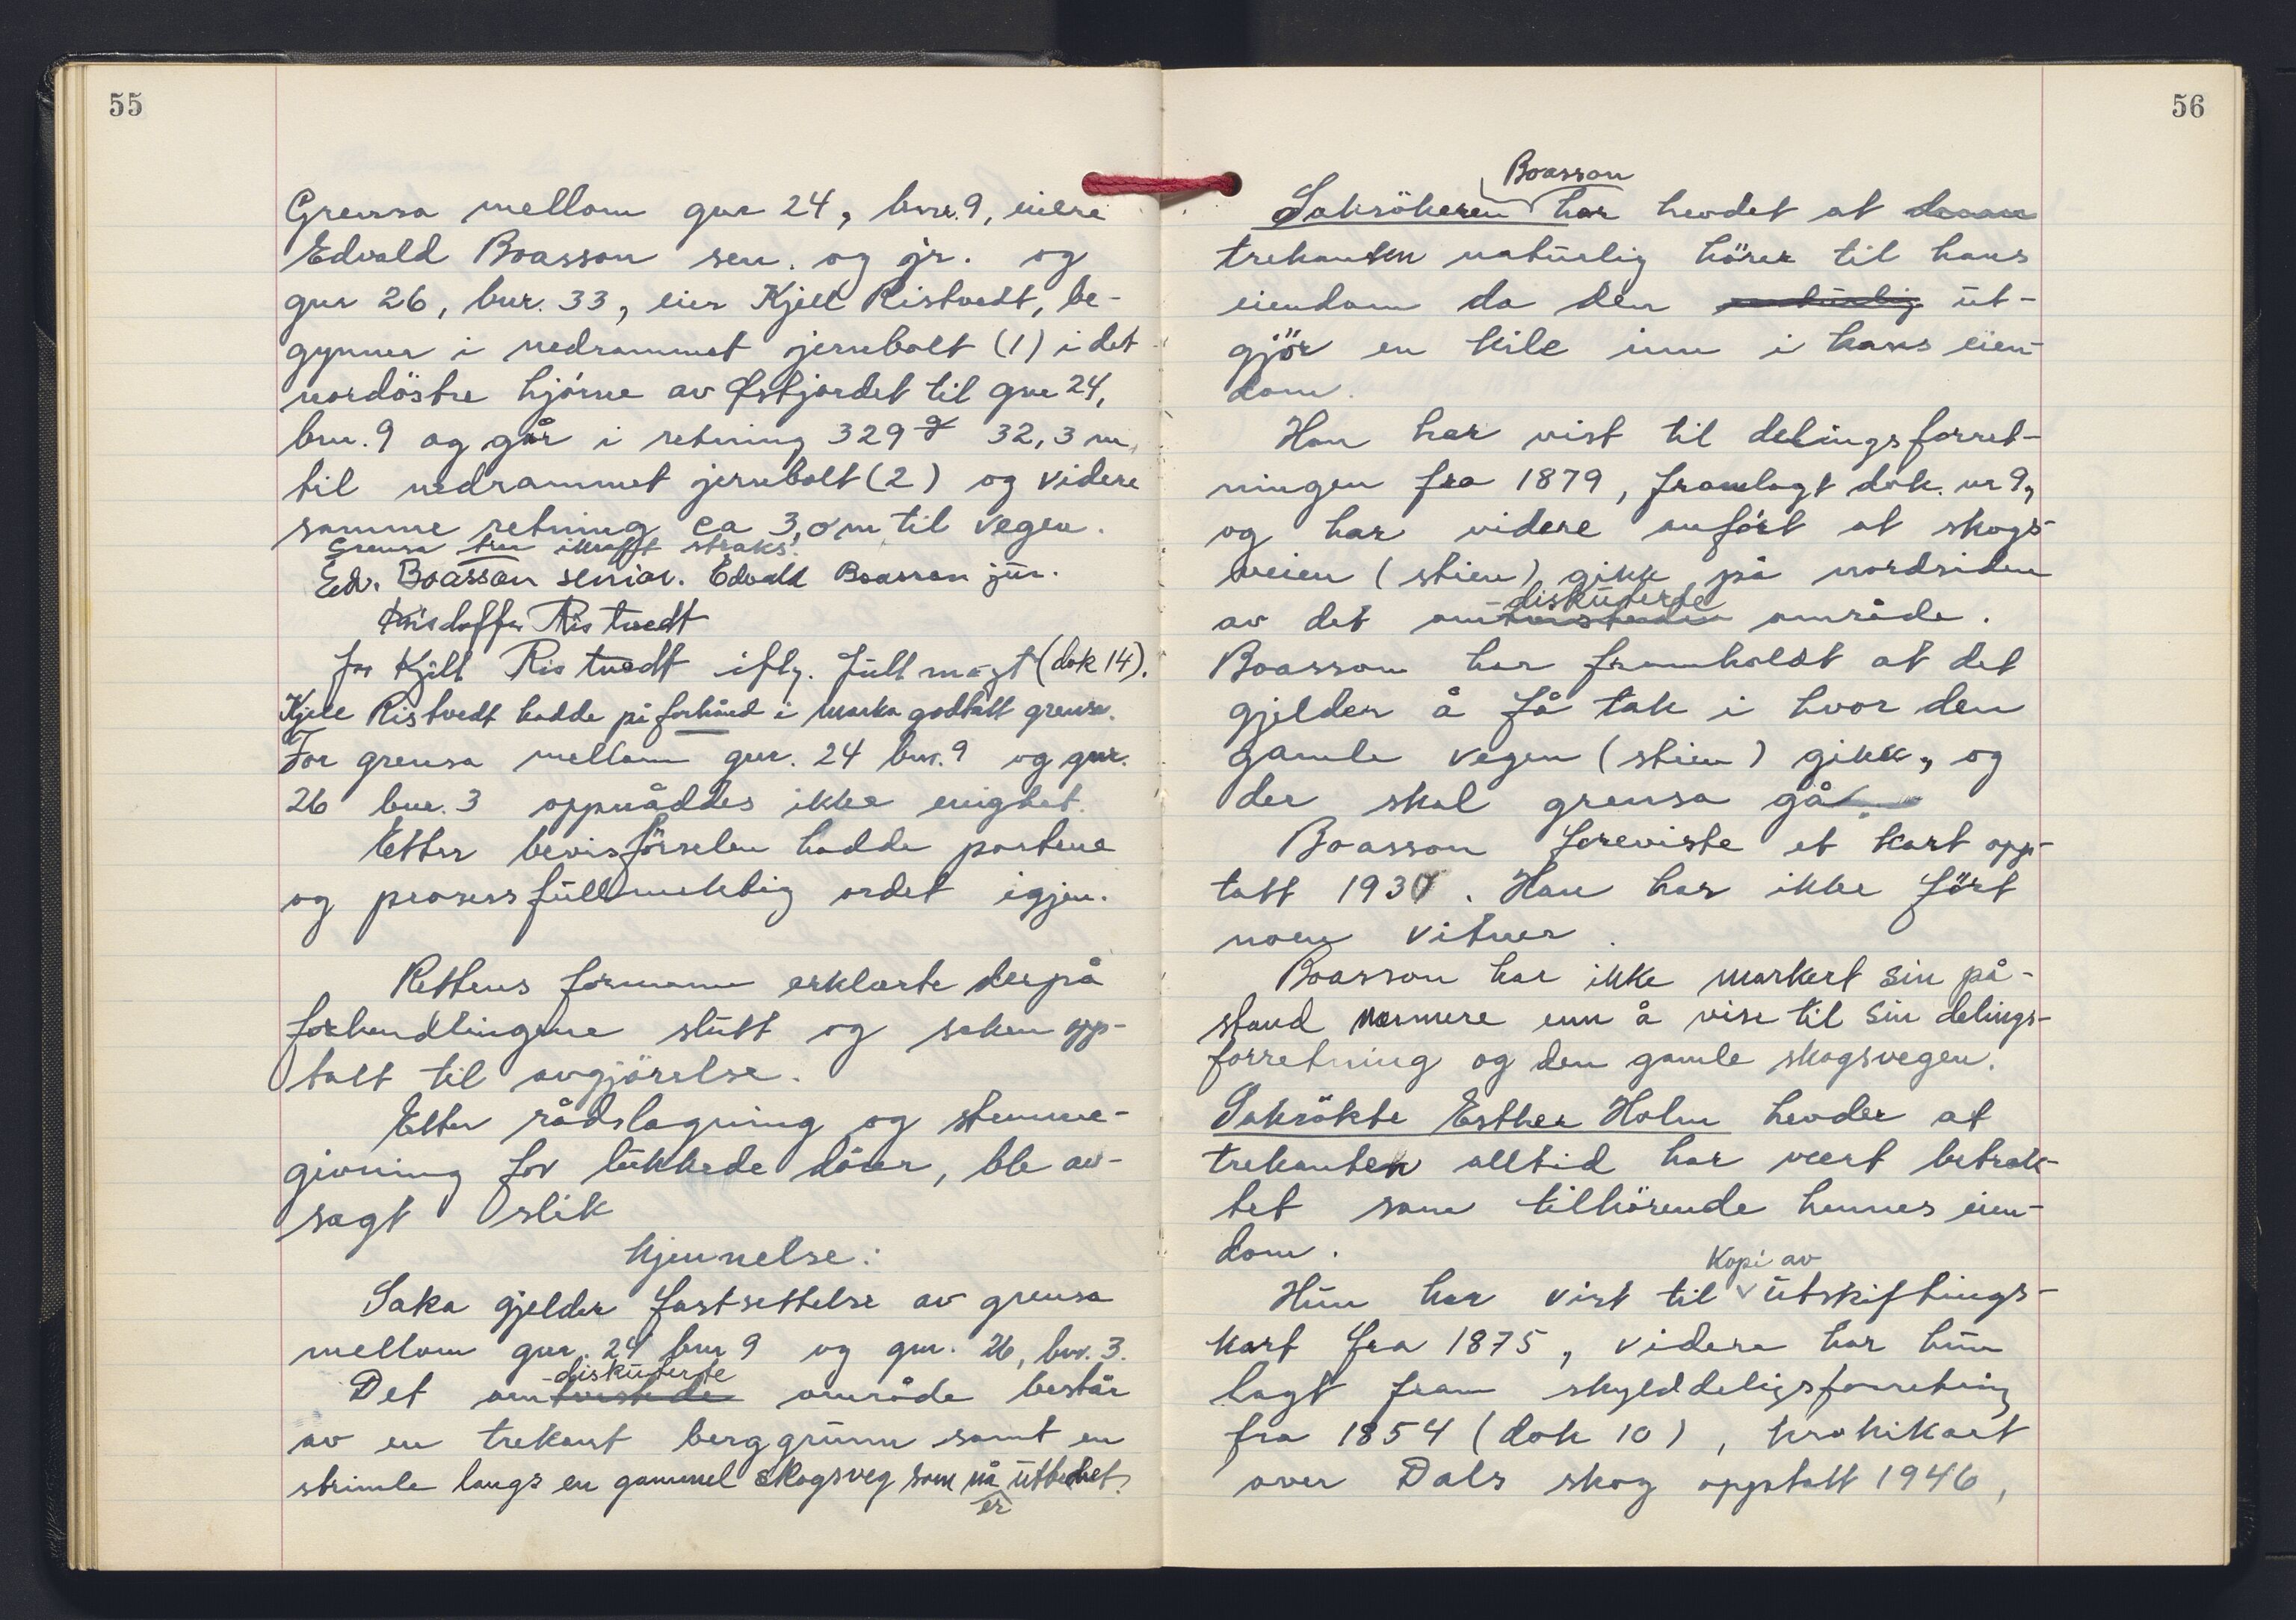 55
Grensa mellom gnr 24, bnr. 9, eiere
Edvald Boasson sen. og jr. og
gnr 26, bnr. 33, eier Kjell Ristvedt, be-
gynner i nedrammet jernbolt (1) i det
nordöstre hjørne av Østjordet til gnr 24,
bnr. 9 og går i retning 329 g 32,3 m
til nedrammet jernbolt (2) og videre
samme retning ca 3,0 m til vegen.
Grensa trer ikraft straks.
Edv. Boasson senior. Edvald Boasson jün.
Kristoffer Ristvedt
for Kjell Ristvedt iflg. fullmagt (dok 14).
Kjell Ristvedt hadde på forhånd i marka godtatt grensa.
For grensa mellom gnr. 24 bnr. 9 og gnr.
26 bnr. 3 oppnåddes ikke enighet.
Etter bevisförselen hadde partene
og prosessfüllmektig ordet igjen.
Rettens formann erklærte derpå
forhandlingene slütt og saken opp-
tatt til avgjörelse.
Etter rådslagning og stemme-
givning for lükkede dörer, ble av-
sagt slik
Kjennelse:
Saka gjelder fastsettelse av grensa
mellom gnr. 24 bnr 9 og gnr. 26, bnr. 3.
diskuterte
Det omtvistede område består
av en trekant berggrünn samt en
strimle langs en gammel skogsveg som nå er ütbedret.
56
Boasson
Saksökeren har hevdet at denne
trekanten natürlig hörer til hans
eiendom da den natürlig üt-
gjör en kile inn i hans eien-
dom.
Han har vist til delingsforret-
ningen fra 1879, framlagt dok. nr 9,
og har videre anfört at skogs-
veien (stien) gikk på nordsiden
diskuterte
av det omtvistede område.
Boasson har framholdt at det
gjelder å få tak i hvor den
gamle vegen (stien) gikk, og
der skal grensa gå.
Boasson foreviste et kart opp-
tatt 1930. Han har ikke fört
noen vitner.
Boasson har ikke markert sin på-
stand nærmere enn å vise til sin delings-
forretning og den gamle skogsvegen.
Saksökte Esther Holm hevder at
trekanten alltid har vært betrak-
tet som tilhörende hennes eien-
dom.
Kopi av
Hün har vist til ütskiftings-
kart fra 1875, videre har hün
lagt fram skylddeligsforretning
fra 1854 (dok 10), krokikart
over Dals skog opptatt 1946,